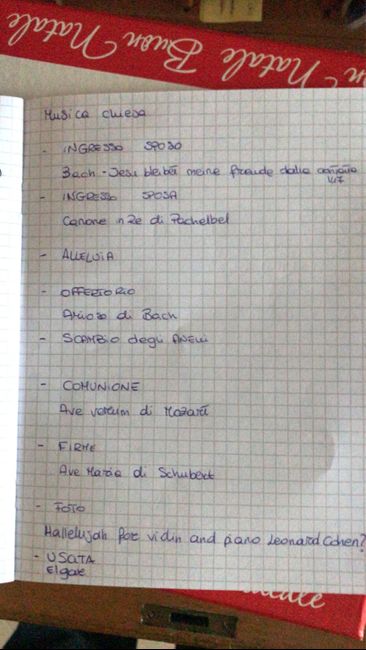 Buon Natale Buon Natale
Musica chiesa
- INGRESSO SPOSO
Bach - Jesu bleibet meine freude dalla cantata
147
- INGRESSO SPOSA
Canone n 2e di Pachelbel
- ALLELUIA
- OFFERTORIO
Arioso di Bach
- SCAMBIO degli ANELLI
- COMUNIONE
Ave verum di Mozart
- FIRME
Ave Maria di Schubert
- FOTO
Hallelujah for violin and piano Leonard Cohen?
- USCITA
Elgar